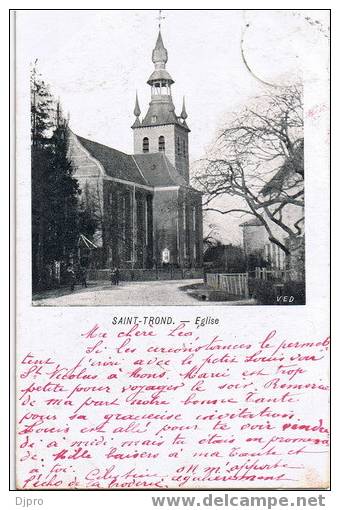 VED
SAINT-TROND. — Eglise
Ma chère Léo,
Si les circonstances le permet
tent j'irai avec le petit Louis
St Nicolas à Mons. Marie est trop
petite pour voyager le soir. Remercie
de ma part notre bonne tante
pour sa gracieuse invitation.
Louis est allé pour te voir
di à midi mais tu étais en promena
de. Mille baisers à ma tante et
à toi. Célestine On m'apporte
l'écho de la broderie régulièrement
Djpro http://www.delcampe.net